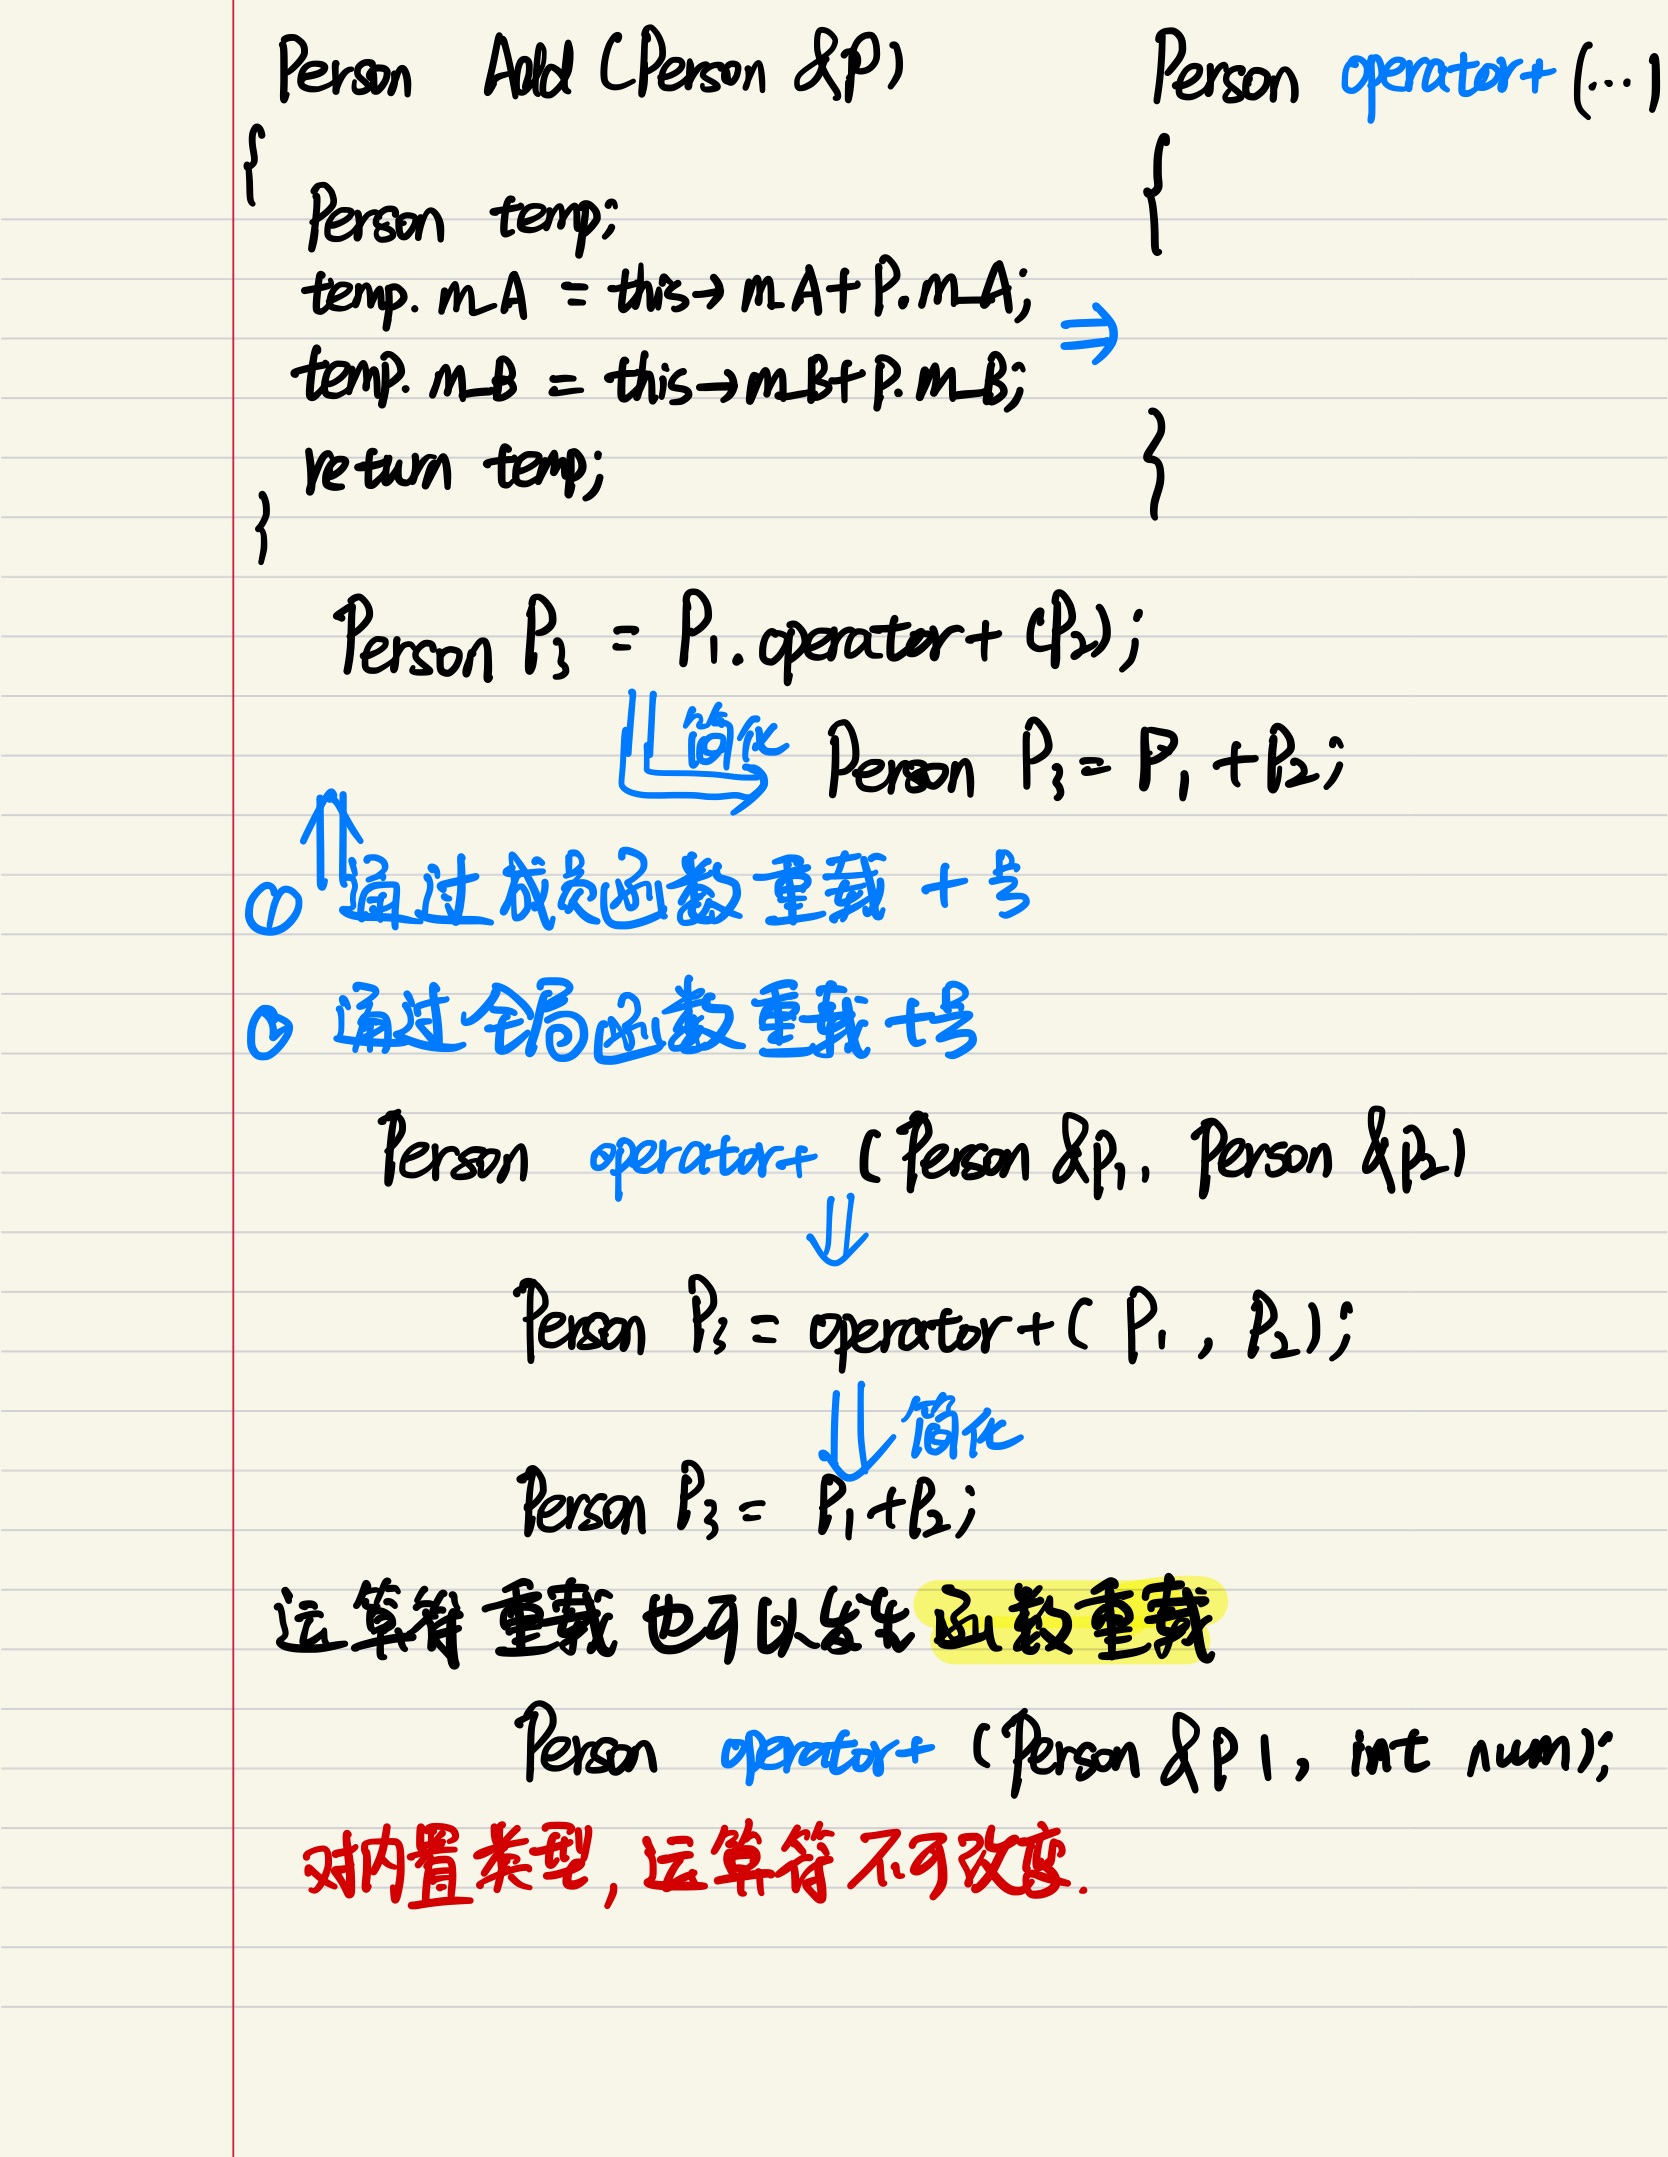 Person Add (Person &P)
Person operator+ (...)
{
{
Person temp;
temp. m_A = this→ m A + P. m_A;
⇒
temp. m_B = this→m_B+P. m_B;
return temp;
}
}
Person P3 = P1. operator+ (P2);
简化
Person P3 = P1 + P2;
① 通过成员函数重载 + 号
② 通过全局函数重载 +号
Person operator+ (Person &P1, Person &P2)
⇓
Person P3 = operator+ ( P1 , P2 );
⇓ 简化
Person P3 = P1+P2;
运算符重载也可以发生函数重载
Person operator+ (Person &P1, int num);
对内置类型,运算符不可改变.